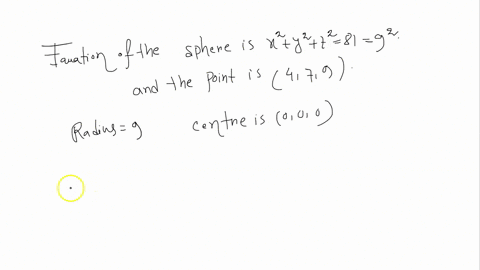 Equation of the sphere is x²+y²+z²=81=9².
and the point is (4,7,9).
Radius=9 centre is (0,0,0)